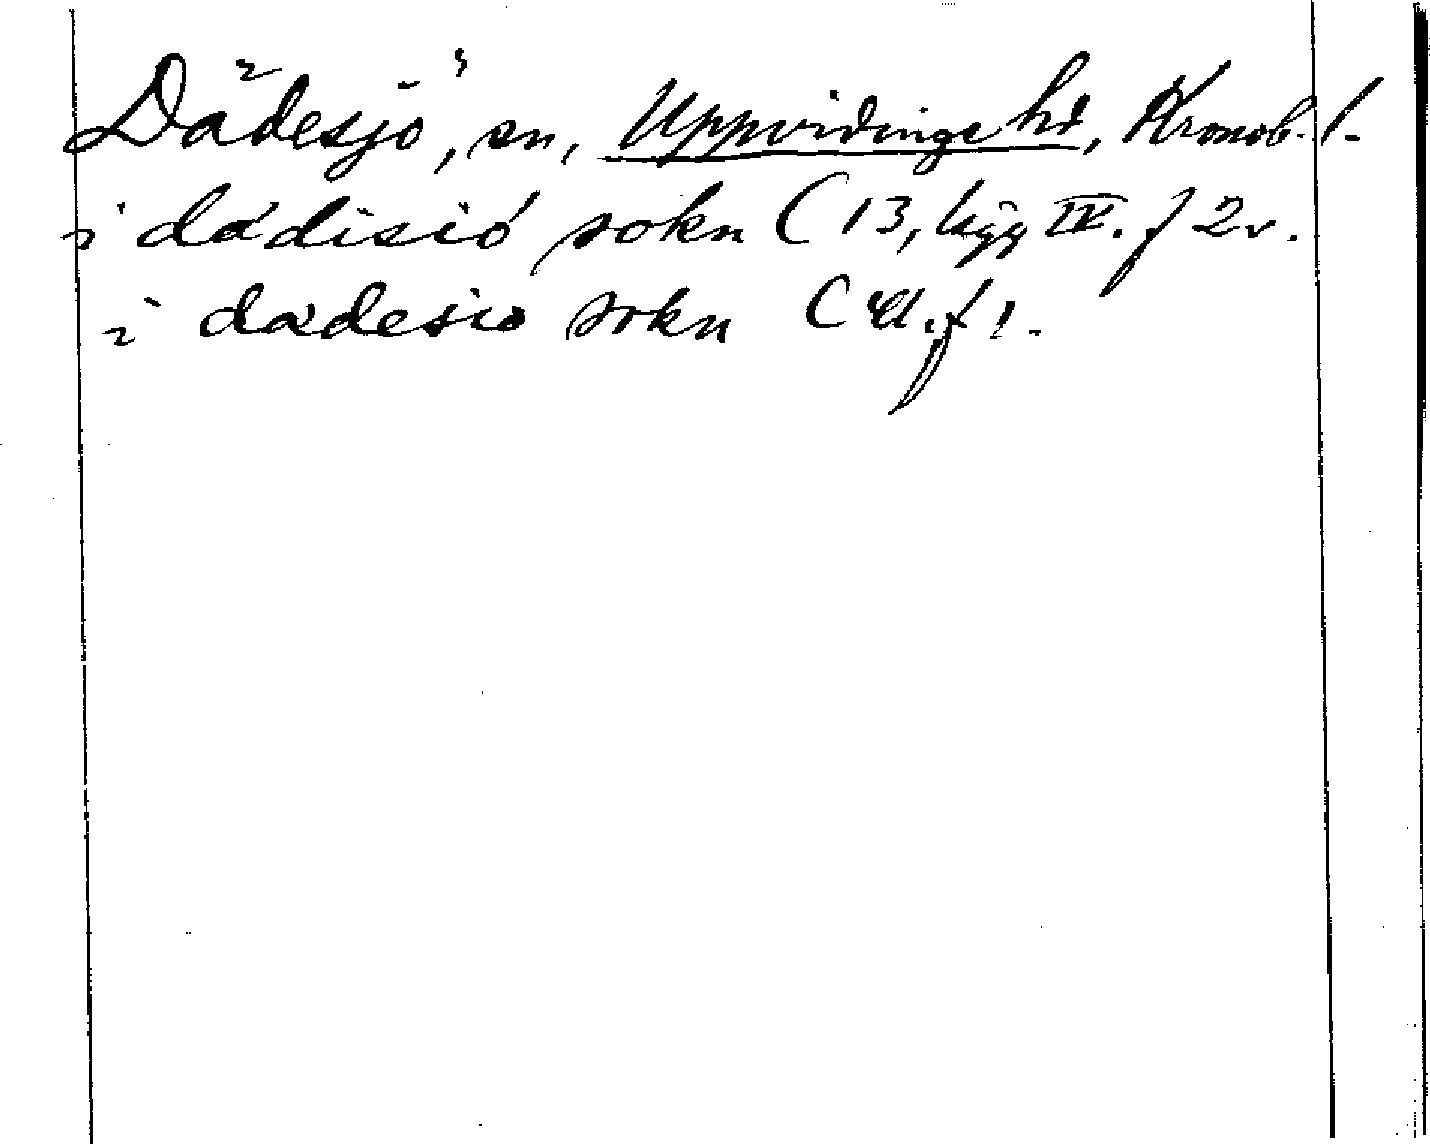 Dädesjö, sn, Uppvidinge hd, Kronob. l.
i dádisió sokn C 13, lägg IV. f 2v.
i dadesio sokn C f 1.